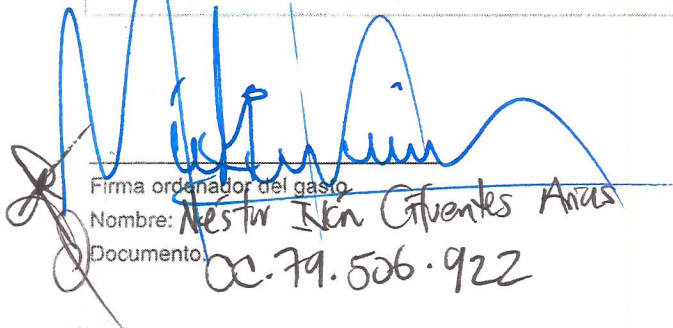 Firma ordenador del gasto
Nombre: Néstor Iván Cifuentes Arias
Documento. CC. 79.506.922